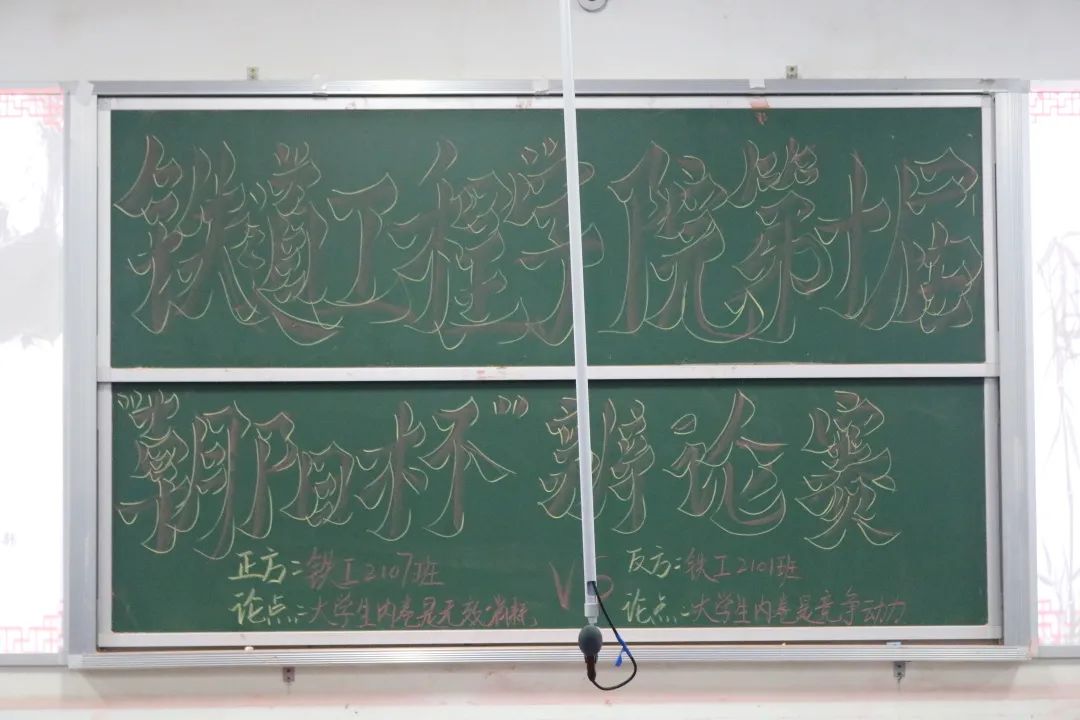 铁道工程学院第十届
“朝阳杯”辩论赛
正方：铁工2107班 VS 反方：铁工2101班
论点：大学生内卷是无效消耗 论点：大学生内卷是竞争动力